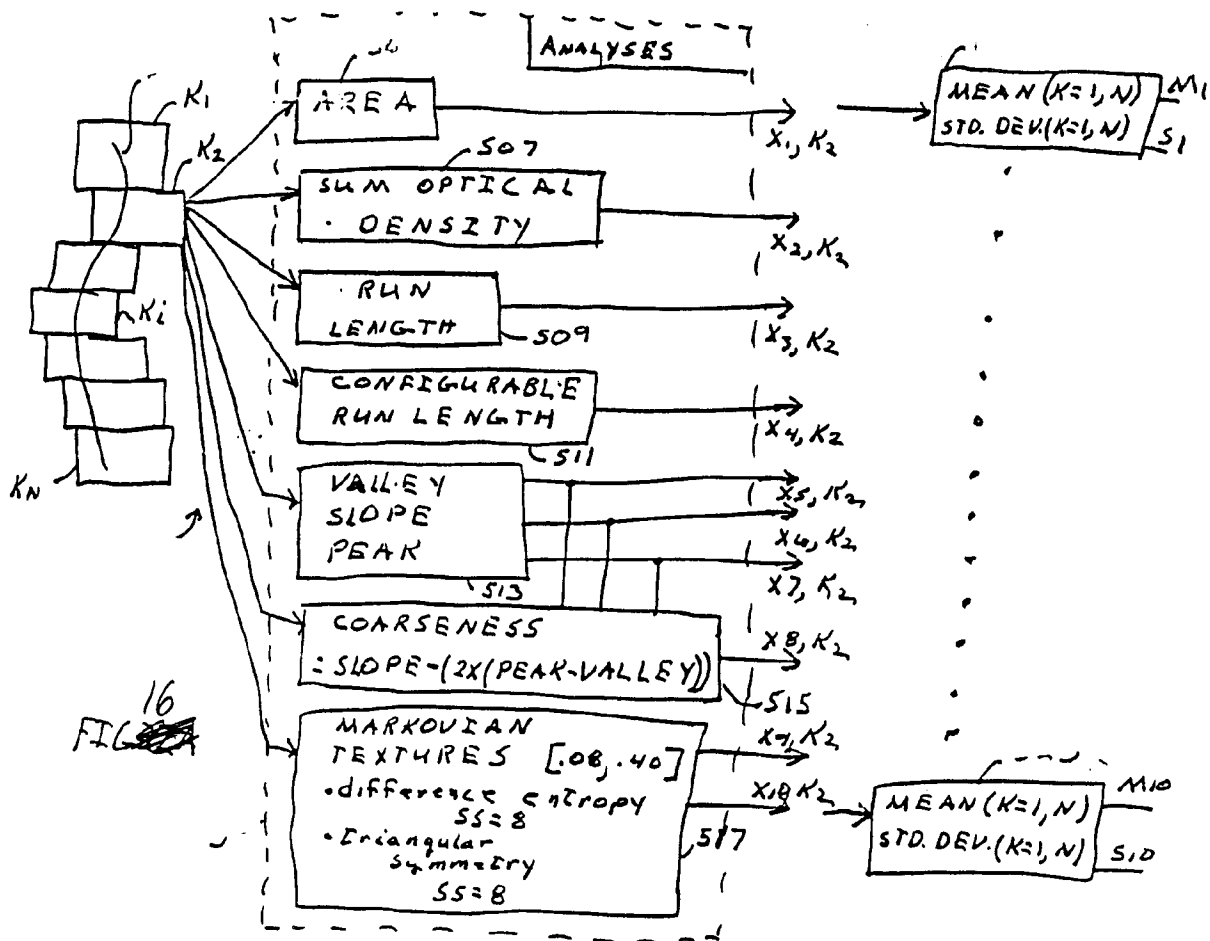 ANALYSES
K1
K2
Ki
KN
AREA
X1, K2
MEAN (K=1, N)
STD. DEV. (K=1, N)
M1
S1
507
SUM OPTICAL
· DENSITY
X2, K2
RUN
LENGTH
509
X3, K2
CONFIGURABLE
RUN LENGTH
511
X4, K2
VALLEY
SLOPE
PEAK
513
X5, K2
X6, K2
X7, K2
COARSENESS
= SLOPE-(2X(PEAK-VALLEY))
515
X8, K2
MARKOVIAN
TEXTURES [.08, .40]
•difference entropy
SS=8
•triangular
symmetry
SS=8
517
X9, K2
X10, K2
MEAN (K=1, N)
STD. DEV. (K=1, N)
M10
S10
16
FIG